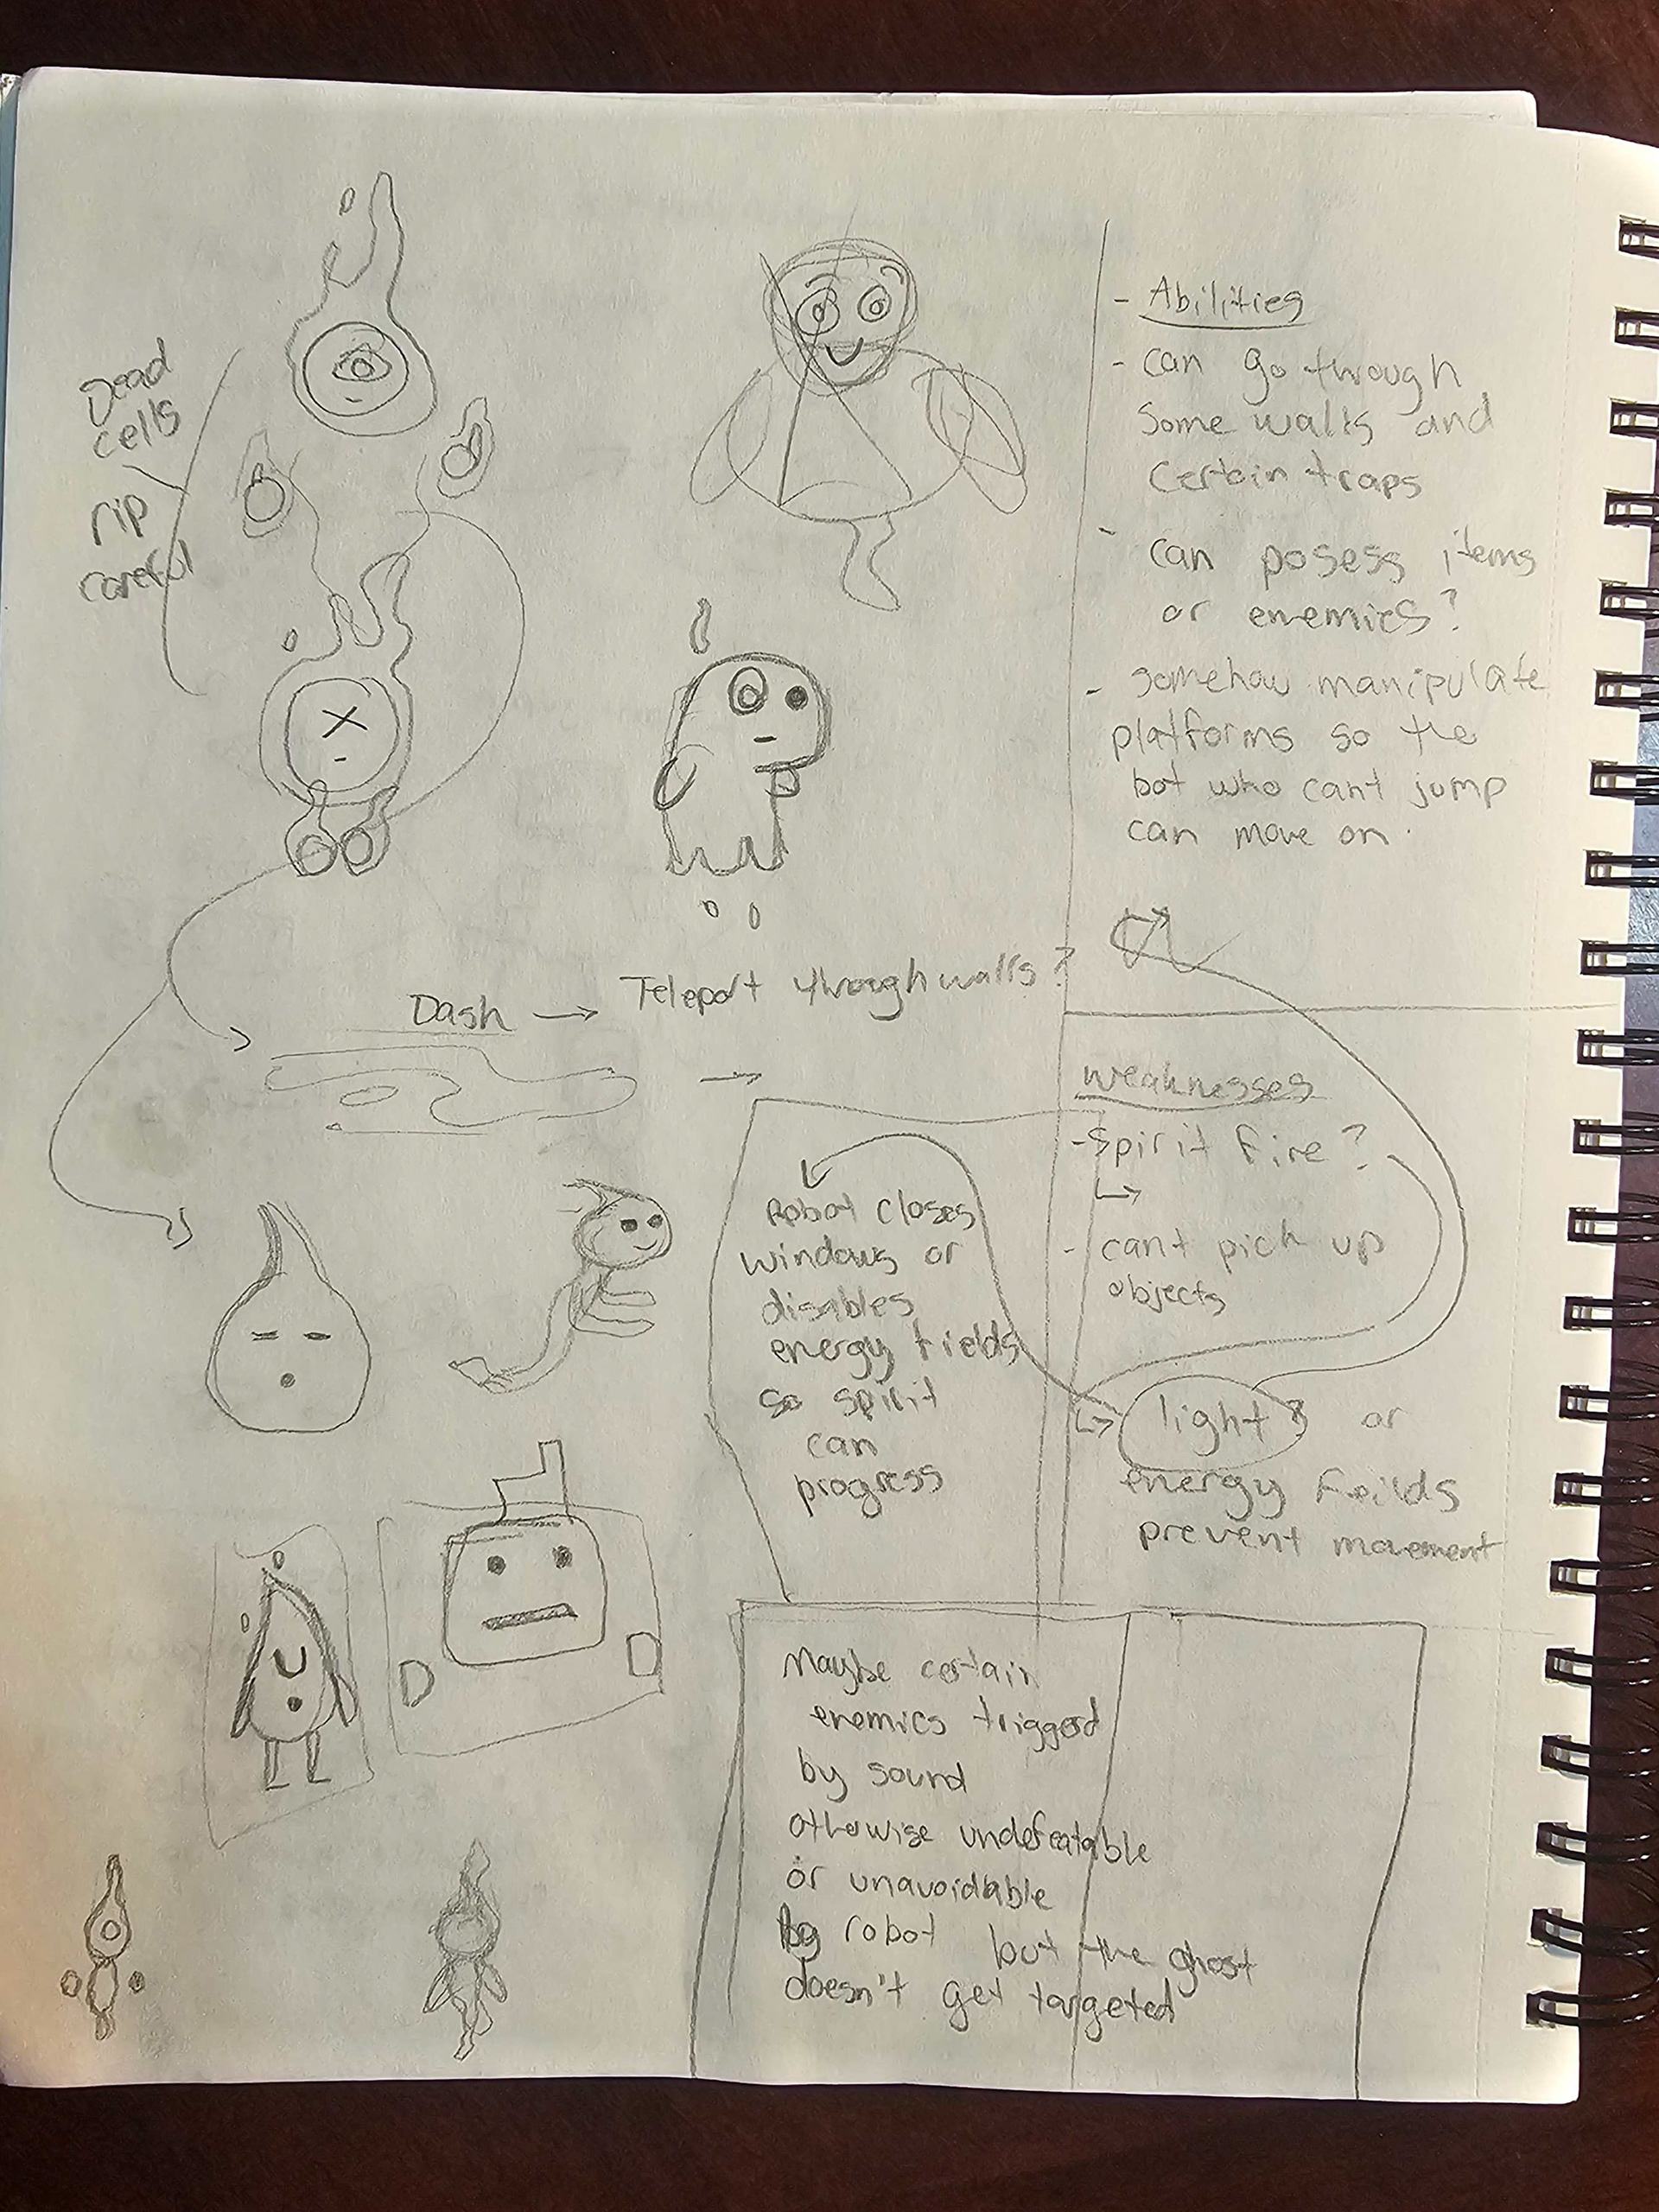 Dead
cells
rip
careful
- Abilities
- can go through
some walls and
certain traps
- can posess items
or enemies?
- somehow manipulate
platforms so the
bot who cant jump
can move on.
Dash → Teleport through walls?
weaknesses
- Spirit fire?
- cant pick up
objects
light? or
energy feilds
prevent movement
Robot closes
windows or
disables
energy fields
so spirit
can
progress
Maybe certain
enemies triggerd
by sound
otherwise undefeatable
or unavoidable
by robot but the ghost
doesn't get targeted